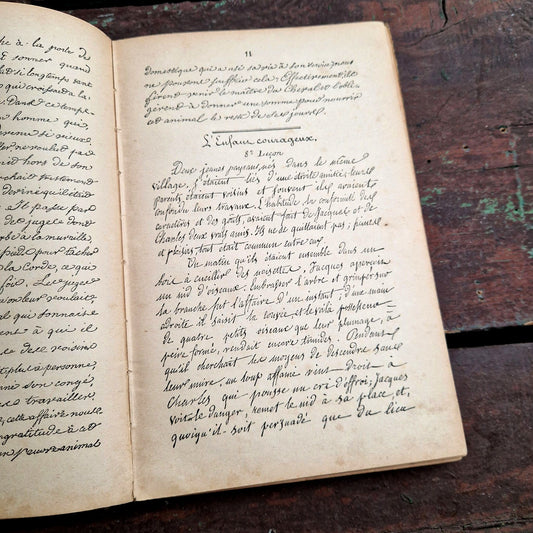 che à la porte de
sonner quand
si longtemps sans
que croisodans la
Dans ce temps
homme qui,
si vieux,
ne voulait pas
hors de son
cherchait
inquiétude
Et parce pas
de juge dont
à la muraille,
pour tâcher
la corde, ce que
fois. Le juge
voulait
qui sonnaise
à qui il
des voisins
plus à personne
son congé
travailler.
cette affaire
gratitude à cet
pauvre animal
11
domestique qui a usé sa vie à son service; nous
ne pouvons souffrir cela. Effectivement ils
firent venir le maître du Cheval et l'obli-
gèrent à donner une somme pour nourrir
cet animal le reste de ses jours.
L'Enfant courageux.
8e Leçon
Deux jeunes paysans, nés dans le même
village, s'étaient liés d'une étroite amitié; leurs
parents étaient voisins et souvent ils avaient
confondu leurs travaux. L'habitude, la conformité des
caractères et des goûts, avaient fait de Jacques et de
Charles deux vrais amis. Ils ne se quittaient pas; peines
et plaisirs, tout était commun entre eux.
Un matin qu'ils étaient ensemble dans un
bois à cueillir des noisettes, Jacques aperçoit
un nid d'oiseaux. Embrasser l'arbre et grimper sur
la branche fut l'affaire d'un instant; d'une main
adroite il saisit la couvée et le voilà possesseur
de quatre petits oiseaux que leur plumage, à
peine formé, rendait encore timides. Pendant
qu'il cherchait les moyens de descendre sans
leur nuire, un loup affamé vint droit à
Charles qui pousse un cri d'effroi; Jacques
voit le danger, remet le nid à sa place et,
quoiqu'il soit persuadé que du lieu